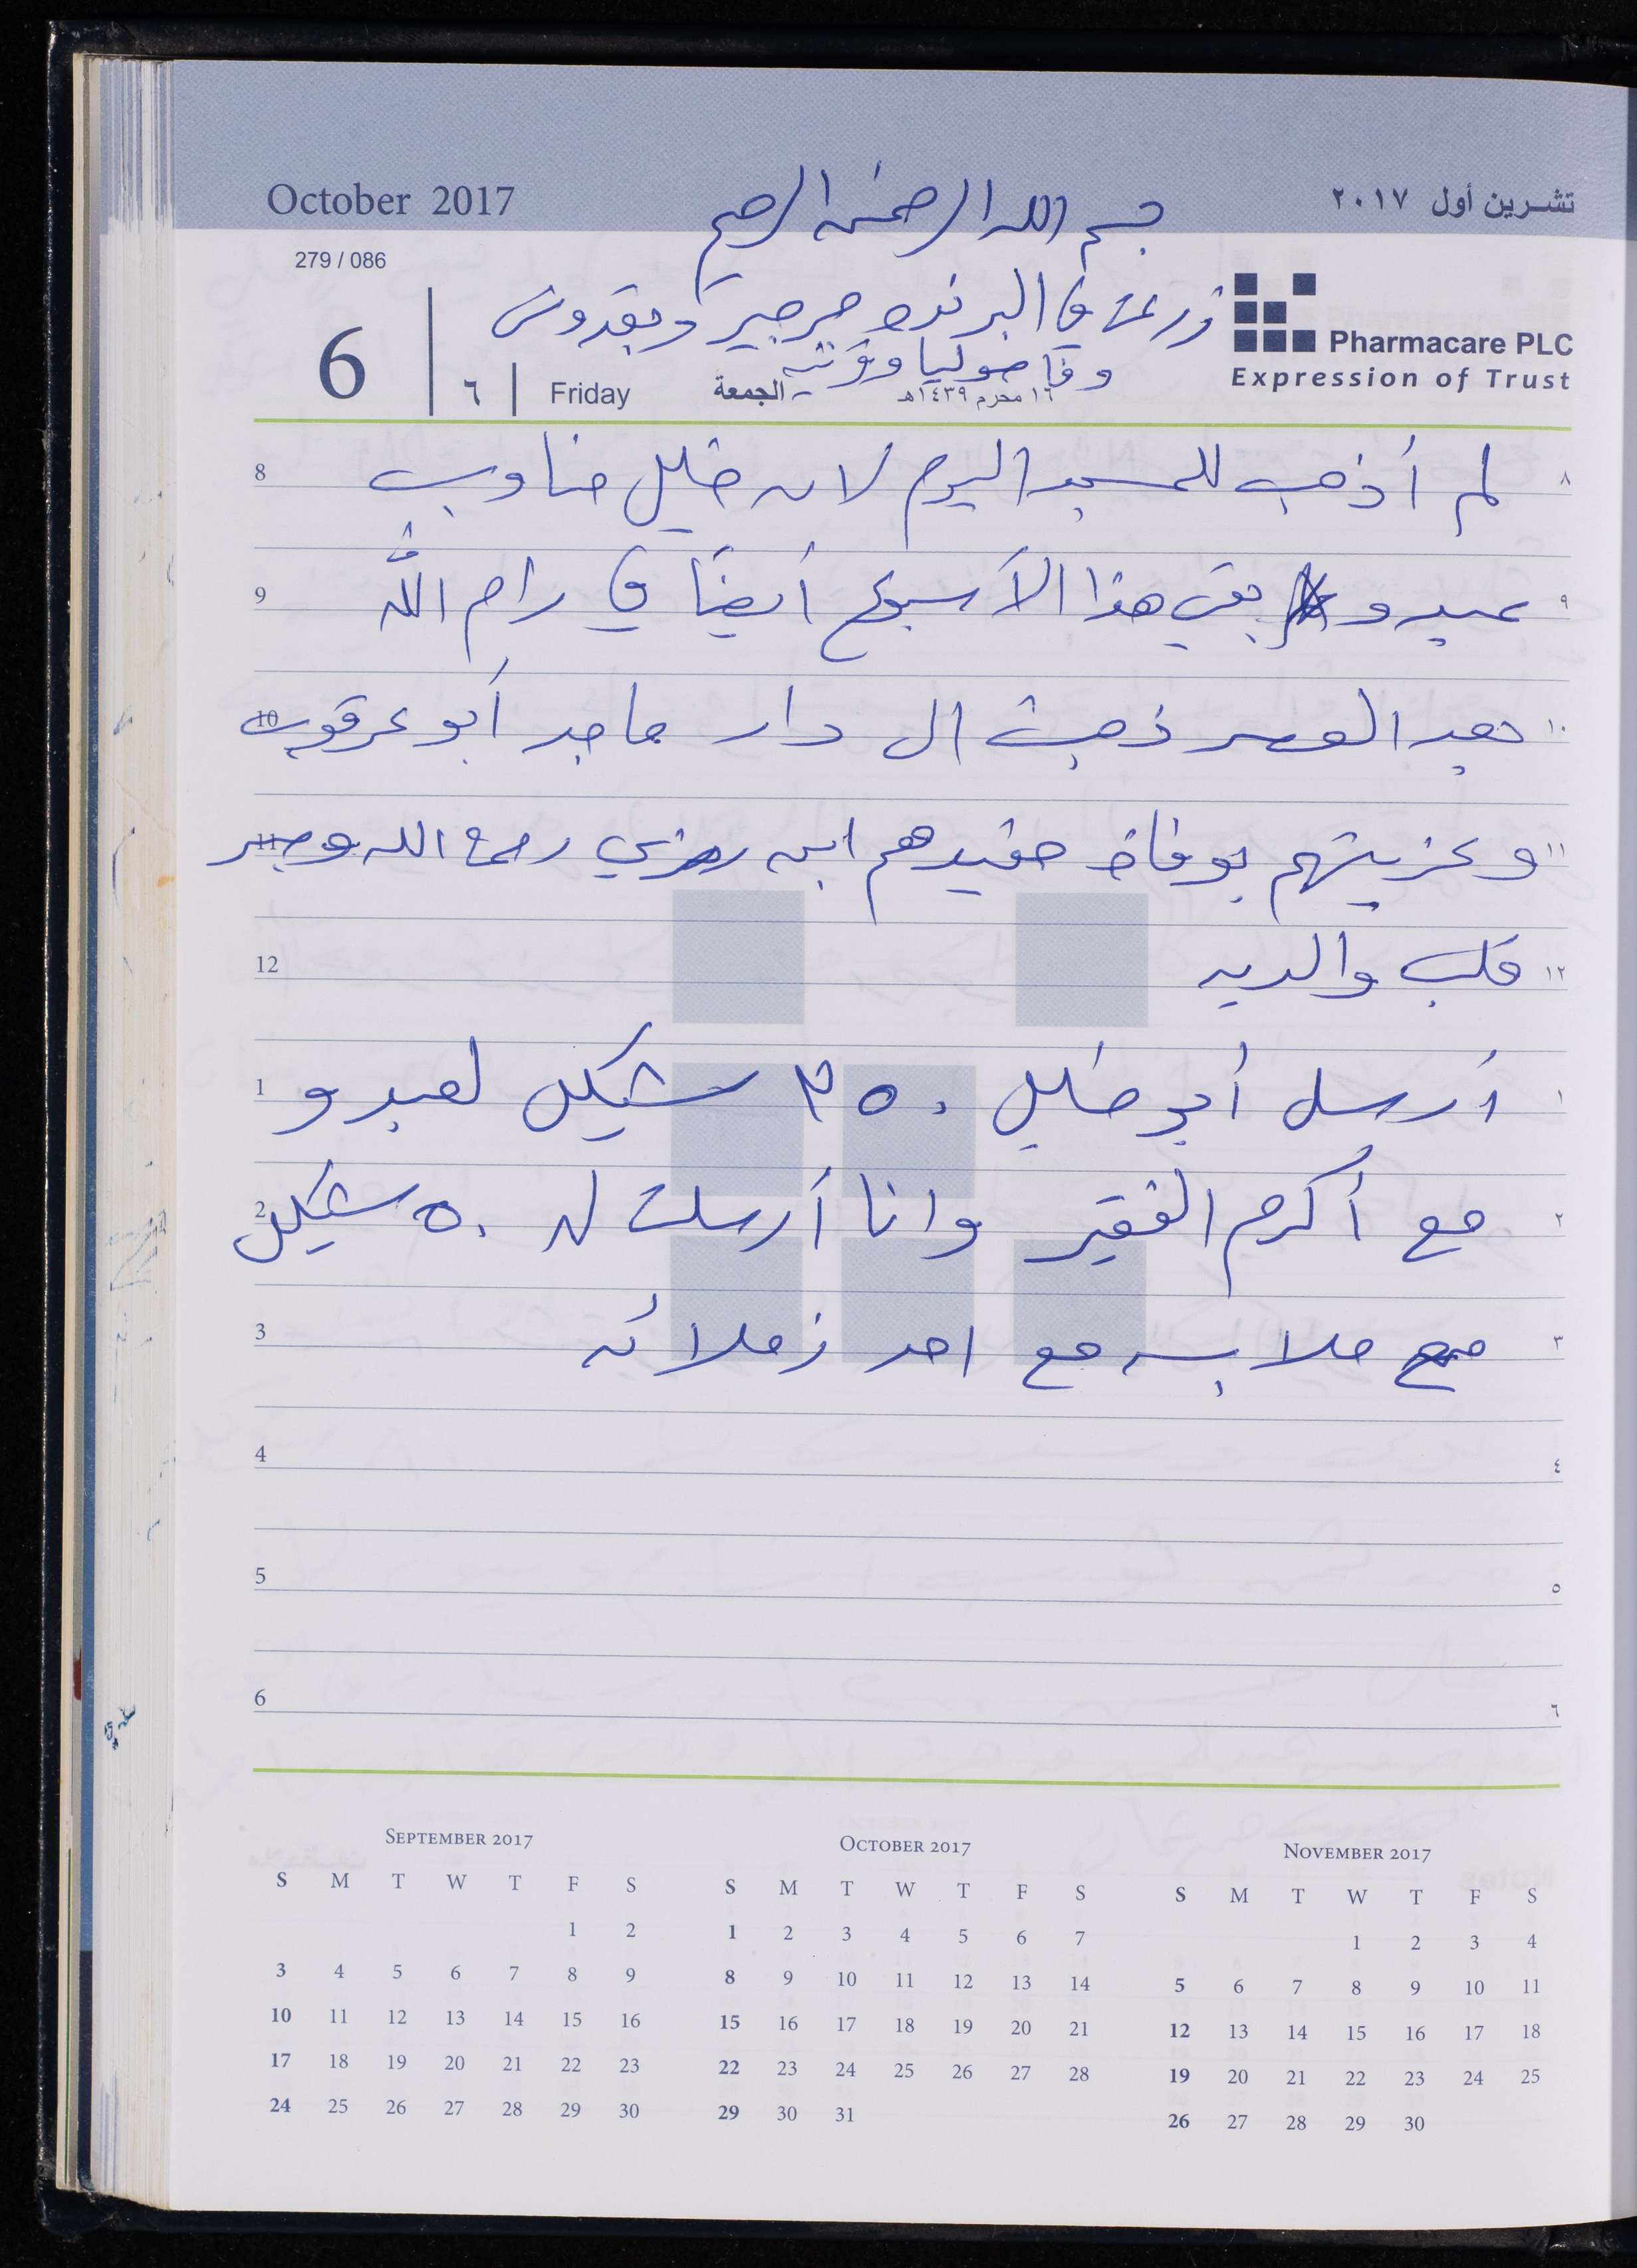 October 2017
بسم الله الرحمن الرحيم
تشرين أول ٢٠١٧
279 / 086
زرعت في البرنده جرجير وبقدونس
Pharmacare PLC
Expression of Trust
وفاصوليا و
6 | ٦ | Friday الجمعة ١٦ محرم ١٤٣٩هـ
8 لم أذهب للمسجد اليوم لان خليل مناوب ٨
9 عبدو بقي هذا الأسبوع أيضاً في رام الله ٩
10 بعد العصر ذهبت الى دار ماجد أبو عرقوب ١٠
11 وعزيتهم بوفاة حفيدهم ابن رمزي رحمه الله وجبر ١١
12 قلب والديه ١٢
1 أرسل أبو خليل ٣٥٠ شيكل لعبدو ١
2 مع أكرم الفقير وانا أرسلت له ٥٠ شيكل ٢
3 مع ملابسه مع احد زملائه ٣
4 ٤
5 ٥
6 ٦
September 2017
S M T W T F S
1 2
3 4 5 6 7 8 9
10 11 12 13 14 15 16
17 18 19 20 21 22 23
24 25 26 27 28 29 30
October 2017
S M T W T F S
1 2 3 4 5 6 7
8 9 10 11 12 13 14
15 16 17 18 19 20 21
22 23 24 25 26 27 28
29 30 31
November 2017
S M T W T F S
1 2 3 4
5 6 7 8 9 10 11
12 13 14 15 16 17 18
19 20 21 22 23 24 25
26 27 28 29 30